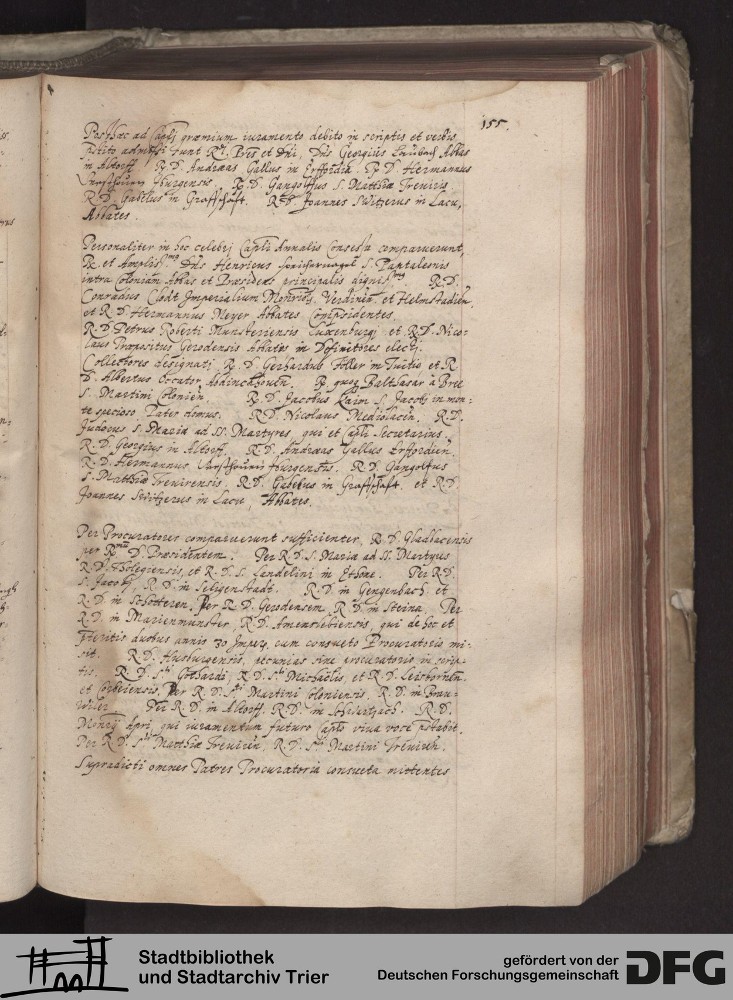 155.
Posthac ad Capli gremium iuramento debito in scriptis et verbis
p͞stito admissi sunt R.di P͞res et D͞ni, D͞ns Georgius Laubach Abbas
in Altorff. R.D. Andreas Gallus in Erffordia. R.D. Hermannus
Iburgensis. R.D. Gangolffus S. Matthiæ Treviris
R.D. Gabelus in Graffschaft. R.D. Joannes Switzerus in Lacu,
Abbates.
Personaliter in hoc celebri Capli Annalis Consessu comparuerunt,
R. et Ampliss.mus D͞ns Henricus S. Pantaleonis
intra Coloniam Abbas et Præsidens principalis digniss.mus R.D.
Conradus Clodt Imperialium Monriorum Verdinen. et Helmstadien.
et R.D. Hermannus Meyer Abbates Conpræsidentes.
R.D. Petrus Roberti Munsteriensis Luxenburgi et R.D. Nico-
laus Præpositus Gerodensis Abbates in Definitores electi.
Collectores designati R.D. Gerhardus Foller in Tuitio et R.
D. Albertus Abdincahouen. R. quoq Balthasar a Bree
S. Martini Colonien. R.D. Jacobus S. Jacobi in mon-
te specioso Pater domus. R.D. Nicolaus Mediolacen. R.D.
Judocus S. Mariæ ad SS. Martyres, qui et Capli Secretarius.
R.D. Georgius in Altorff. R.D. Andreas Gallus Erffordien.
R.D. Hermannus Iburgensis. R.D. Gangolfus
S. Matthiæ Trevirensis. R.D. Gabelus in Graffschaft. et R.D.
Joannes Switzerus in Lacu, Abbates.
Per Procuratores comparuerunt sufficienter, R.D. Gladbacensis
per R.mum D. Præsidentem. Per R.D. S. Mariæ ad SS. Martyres
R.D. et R.D. S. Landelini in Ethone. Per R.D.
S. Jacobi, R.D. in Seligenstadt. R.D. in Gengenbach. et
R.D. in Schotteren. Per R.D. Gerodensem R.D. in Steina. Per
R.D. in Marienmunster, R.D. Amenslebiensis, qui de hoc et
p͞teritis duobus annis 30 Imper, cum consueto Procuratorio mi-
sit. R.D. Husburgensis, pecunias sine procuratorio in scrip-
tis. R.D. S.ti Gothardi, R.D. S.ti Michaelis, et R.D. Leisbornen.
et Corbeiensis. Per R.D. S.ti Martini Coloniensis, R.D. in Brau-
wiler Per R.D. in Altorff, R.D. in Schwartzach. R.D.
Moncij Apri, qui iuramentum futuro Caplo viua voce p͞stabit.
Per R.D. S.ti Matthiæ Treviren, R.D. S.ti Martini Treviren.
Supradicti omnes Patres Procuratoria consueta mittentes
Stadtbibliothek
und Stadtarchiv Trier
gefördert von der
Deutschen Forschungsgemeinschaft
DFG